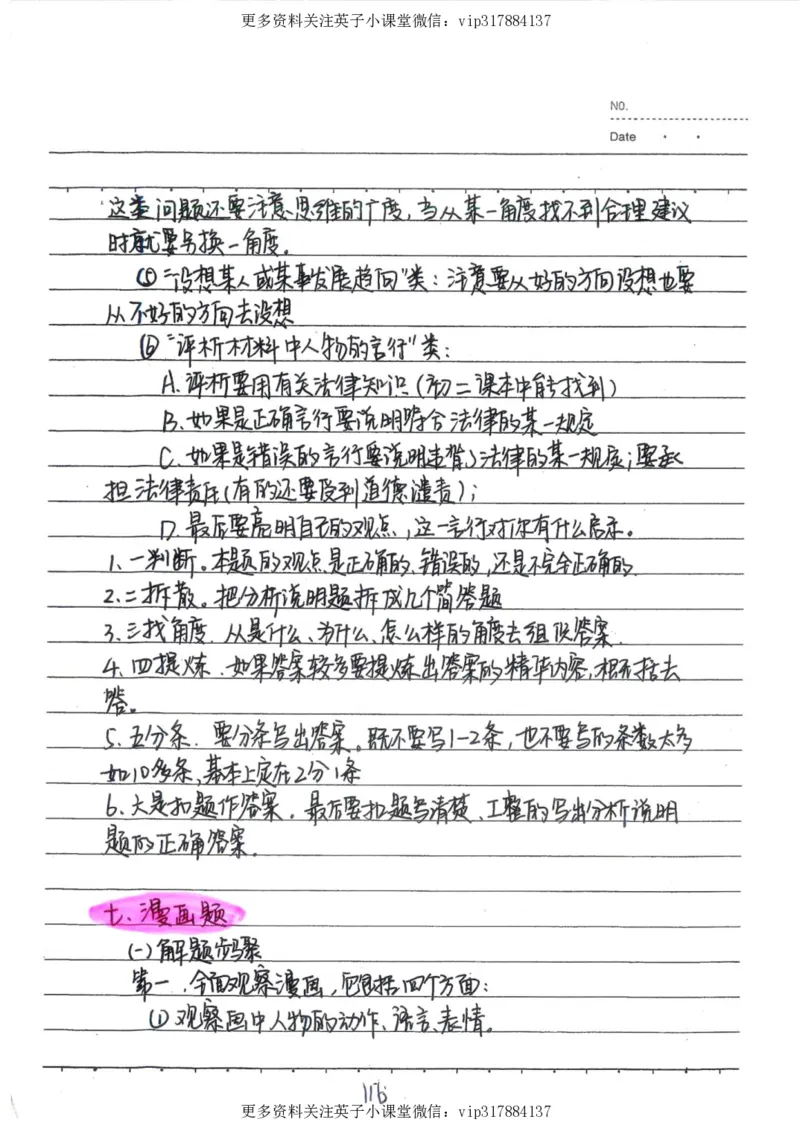 更多资料关注英子小课堂微信：vip317884137
NO.
Date
这类问题还要注意思维的广度，当从某一角度找不到合理建议
时就要另换一角度。
⑤"设想某人或某事发展趋向"类：注意要从好的方向设想也要
从不好的方向去设想
⑥"评析材料中人物的言行"类：
A.评析要用有关法律知识（初二课本中能找到）
B.如果是正确言行要说明符合法律的某一规定
C.如果是错误的言行要说明违背法律的某一规定；要承
担法律责任（有的还要受到道德谴责）；
D.最后要亮明自己的观点，这一言行对你有什么启示。
1.一判断。本题的观点是正确的、错误的，还是不完全正确的.
2.二拆散。把分析说明题拆成几个简答题
3.三找角度.从是什么、为什么、怎么样的角度去组织答案.
4.四提炼.如果答案较多要提炼出答案的精华内容，概括去
答。
5.五分条.要分条写出答案。既不要写1-2条，也不要写的条数太多
如10多条，基本上定在2分1条
6.六是扣题作答案.最后要扣题写清楚、工整的写出分析说明
题的正确答案.
七、漫画题
(一)解题步骤
第一.全面观察漫画，包括四个方面：
①观察画中人物的动作、语言、表情。
116
更多资料关注英子小课堂微信：vip317884137